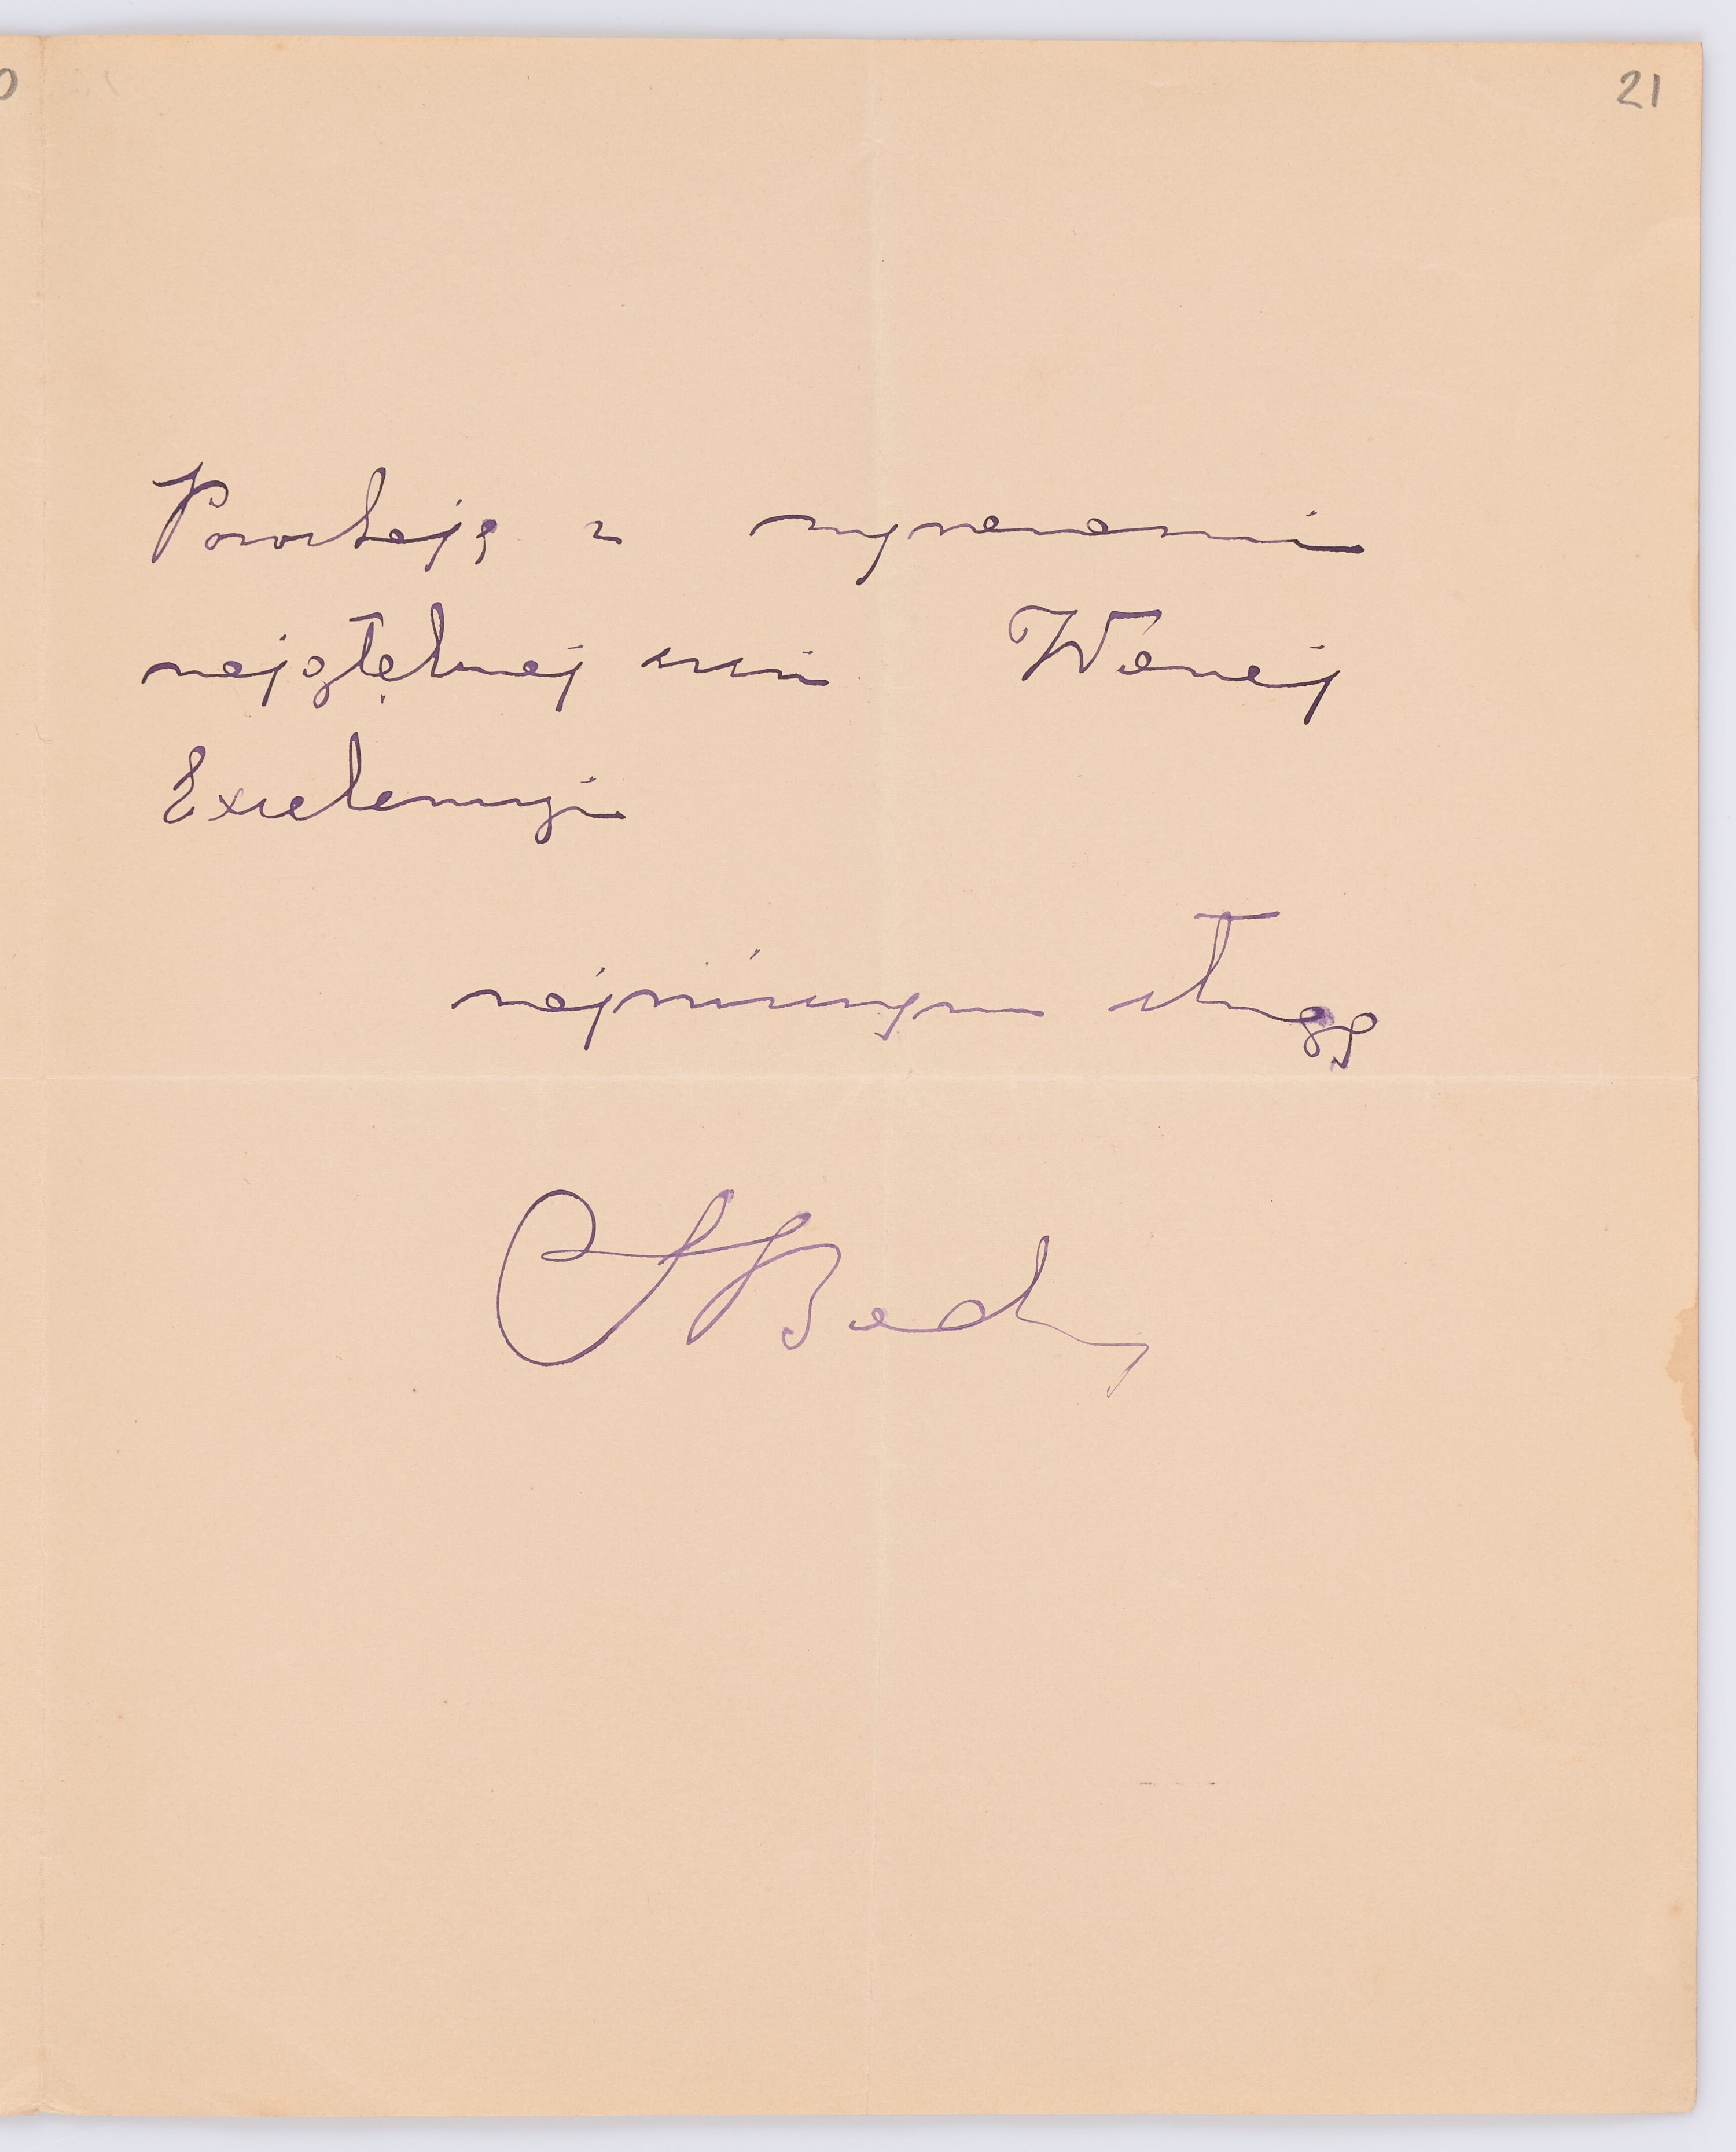 21
Pozostaję z wyrazami
najgłębszej czci Waszej
Excelencyi
najniższym sługą